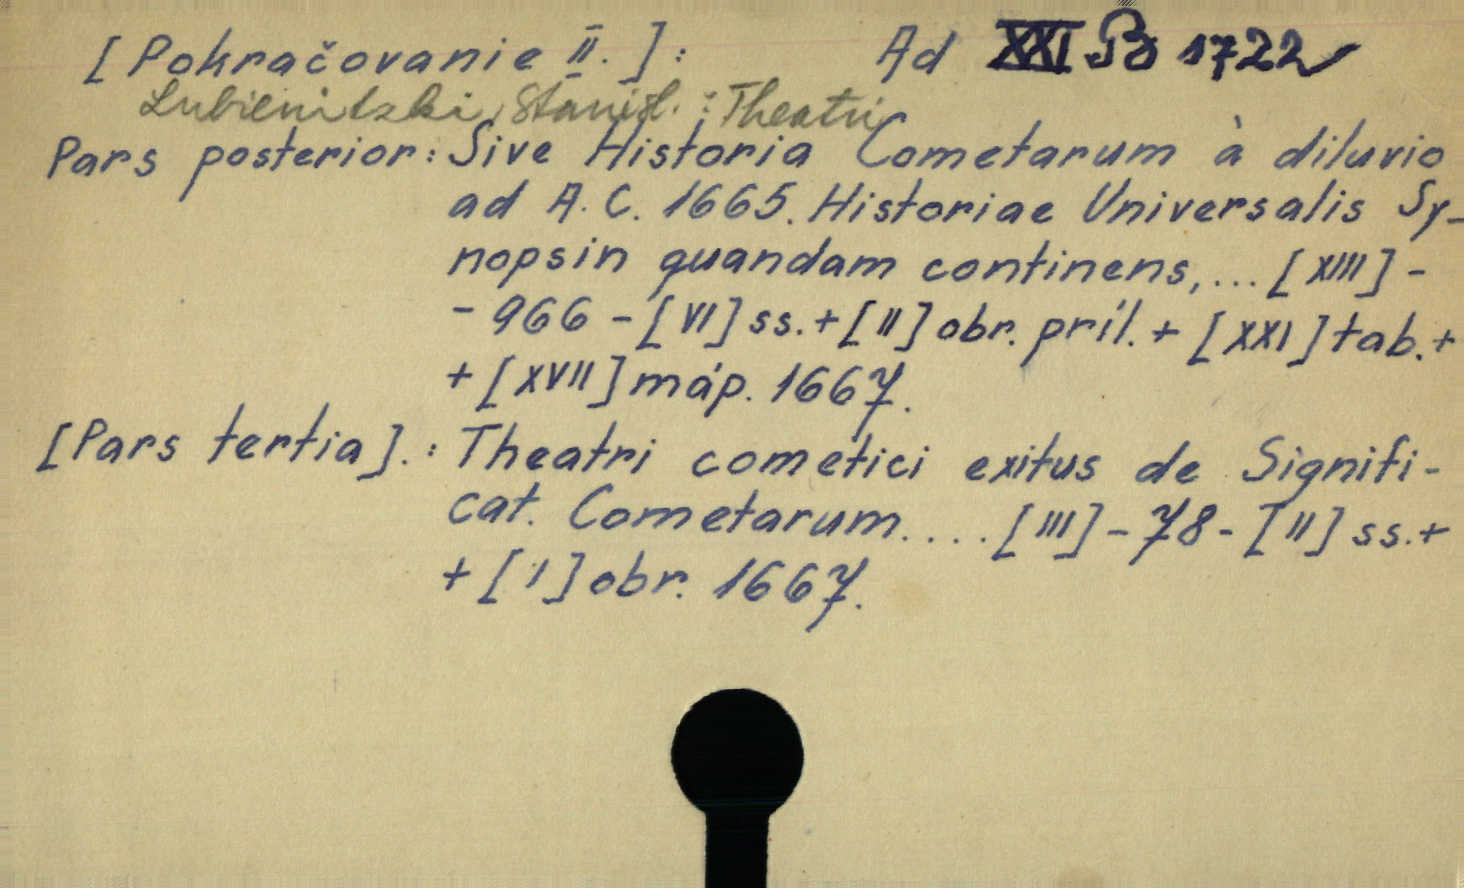 [Pokračovanie II.]: Ad XXI B 1722
Lubienitzki, Stanisl.: Theatri
Pars posterior: Sive Historia Cometarum à diluvio
ad A. C. 1665. Historiae Universalis Sy-
nopsin quandam continens,... [XIII] -
- 966 - [VI] ss. + [II] obr. príl. + [XXI] tab. +
+ [XVII] máp. 1667.
[Pars tertia].: Theatri cometici exitus de Signifi-
cat. Cometarum.... [III] - 78 - [II] ss. +
+ [I] obr. 1667.